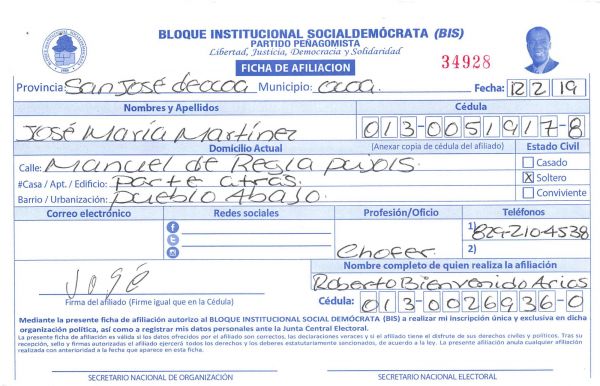 BLOQUE INSTITUCIONAL SOCIALDEMÓCRATA (BIS)
PARTIDO PEÑAGOMISTA
Libertad, Justicia, Democracia y Solidaridad
FICHA DE AFILIACION
34928
Provincia San José de ocoa Municipio: ocoa. Fecha: 12 2 19
Nombres y Apellidos Cédula
José María Martínez 013-0051917-8
Domicilio Actual (Anexar copia de cédula del afiliado) Estado Civil
Calle: Manuel de Regla pujols. Casado
#Casa / Apt. / Edificio: parte atras. X Soltero
Barrio / Urbanización: pueblo Abajo. Conviviente
Correo electrónico Redes sociales Profesión/Oficio Teléfonos
1) 829-210-4538
Chofer. 2)
Nombre completo de quien realiza la afiliación
José Roberto Bienvenido Arias
Firma del afiliado (Firme igual que en la Cédula) Cédula: 013-0026936-0
Mediante la presente ficha de afiliación autorizo al BLOQUE INSTITUCIONAL SOCIAL DEMÓCRATA (BIS) a realizar mi inscripción única y exclusiva en dicha
organización política, así como a registrar mis datos personales ante la Junta Central Electoral.
La presente ficha de afiliación es válida si los datos ofrecidos por el afiliado son correctos, las declaraciones veraces y si el afiliado tiene el disfrute de sus derechos civiles y políticos. Tras su
recepción, sello y firmas autorizadas el afiliado ejercerá todos los derechos y los deberes estatutariamente sancionados, de acuerdo a la ley. La presente afiliación anula cualquier afiliación
realizada con anterioridad a la fecha que aparece en esta ficha.
SECRETARIO NACIONAL DE ORGANIZACIÓN SECRETARIO NACIONAL ELECTORAL